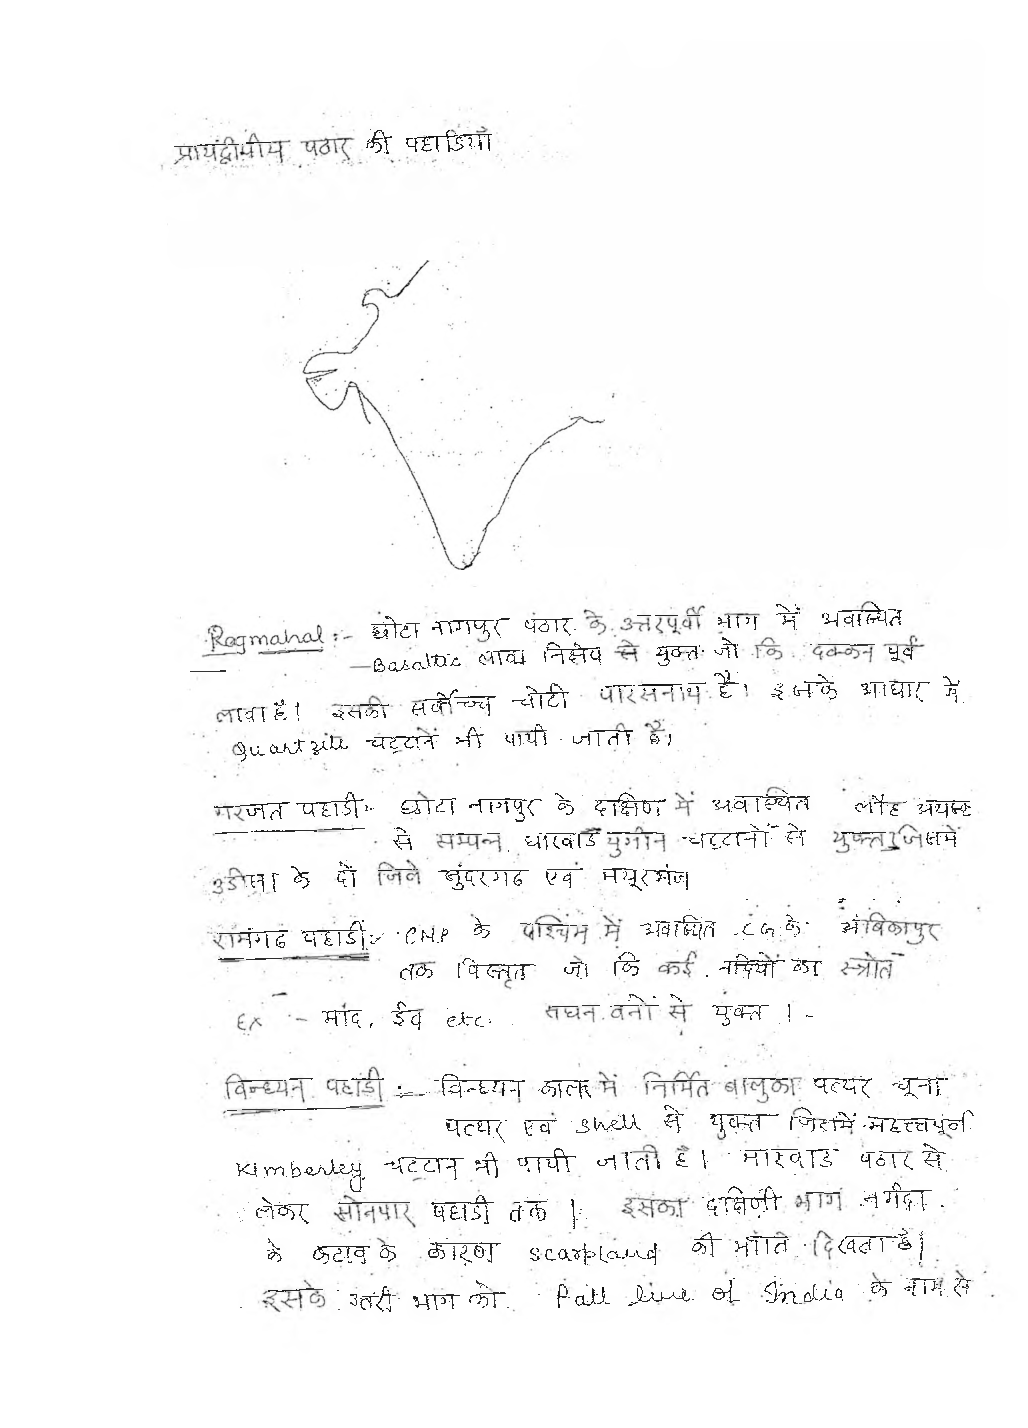 प्रायद्वीपीय पठार की पहाडियाँ
Ragmahal :- छोटा नागपुर पठार के उत्तरपूर्वी भाग में अवस्थित
- Basaltic लावा निक्षेप से युक्त जो कि दक्कन पूर्व
लावा है। इसकी सर्वोच्च चोटी पारसनाथ है। इनके आधार में
Quartzite चट्टानें भी पायी जाती है।
गरजत पहाडी:- छोटा नागपुर के दक्षिण में अवास्थित लौह अयस्क
से सम्पन्न धारवाड युगीन चट्टानों से युक्त जिसमें
उडीसा के दो जिले सुंदरगढ एवं मयूरभंज
रामगढ पहाडी:- CNP के पश्चिम में अवस्थित CG के अंबिकापुर
तक विस्तृत जो कि कई नदियों का स्त्रोत
Ex :- मांद, ईव etc. सघन वनों से युक्त।
विन्ध्यन पहाडी :- विन्ध्यन काल में निर्मित बालुका पत्थर चूना
पत्थर एवं shell से युक्त जिसमें महत्त्वपूर्ण
Kimberley चट्टान भी पायी जाती है। मारवाड पठार से
लेकर सोनपार पहाडी तक। इसका दक्षिणी भाग नर्मदा
के कटाव के कारण scarpland की भाँति दिखता है।
इसके उतरी भाग को Fall line of India के नाम से